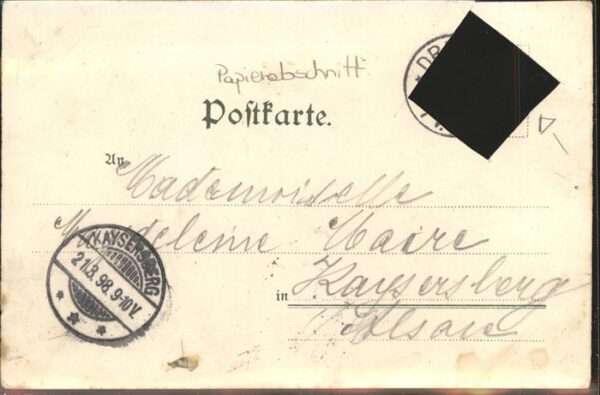 Papierabschnitt
DR
Postkarte.
An
Mademoiselle
Madeleine Maire
in Kaysersberg
Alsace
KAYSERSBERG
21.3.98.9-10V.